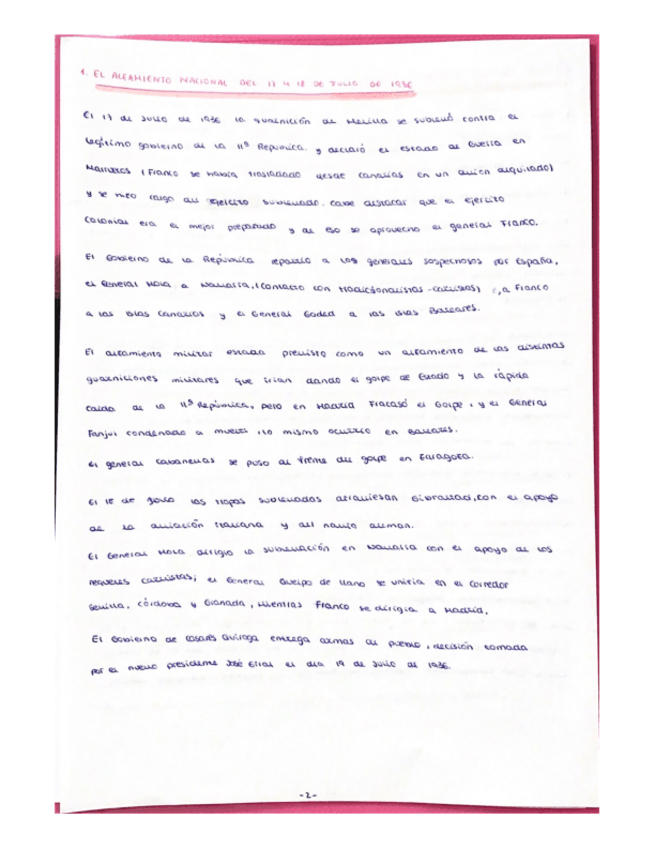 1. EL ALZAMIENTO NACIONAL DEL 17 Y 18 DE JULIO DE 1936
El 17 de Julio de 1936 la guarnición de Melilla se sublevó contra el
legítimo gobierno de la IIª República, y declaró el estado de Guerra en
Marruecos (Franco se había trasladado desde Canarias en un avión alquilado)
y se hizo cargo del ejército sublevado. Cabe destacar que el ejército
Colonial era el mejor preparado y de eso se aprovechó el general Franco.
El Gobierno de la República repartió a los generales sospechosos por España,
el General Mola a Navarra, (contacto con tradicionalistas-carlistas), a Franco
a las Islas Canarias y el General Goded a las Islas Baleares.
El alzamiento militar estaba previsto como un alzamiento de las distintas
guarniciones militares que irían dando el golpe de Estado y la rápida
caída de la IIª República, pero en Madrid Fracasó el Golpe, y el General
Fanjul condenado a muerte, lo mismo ocurrió en Baleares.
El general Cabanellas se puso al frente del golpe en Zaragoza.
El 18 de Julio las tropas sublevadas atraviesan Gibraltar, con el apoyo
de la aviación italiana y del navío alemán.
El General Mola dirigió la sublevación en Navarra con el apoyo de los
requetés carlistas; el General Queipo de Llano se uniría en el corredor
Sevilla, Córdoba y Granada, mientras Franco se dirigía a Madrid.
El Gobierno de Casares Quiroga entrega armas al pueblo, decisión tomada
por el nuevo presidente José Giral el día 19 de Julio de 1936.
-2-